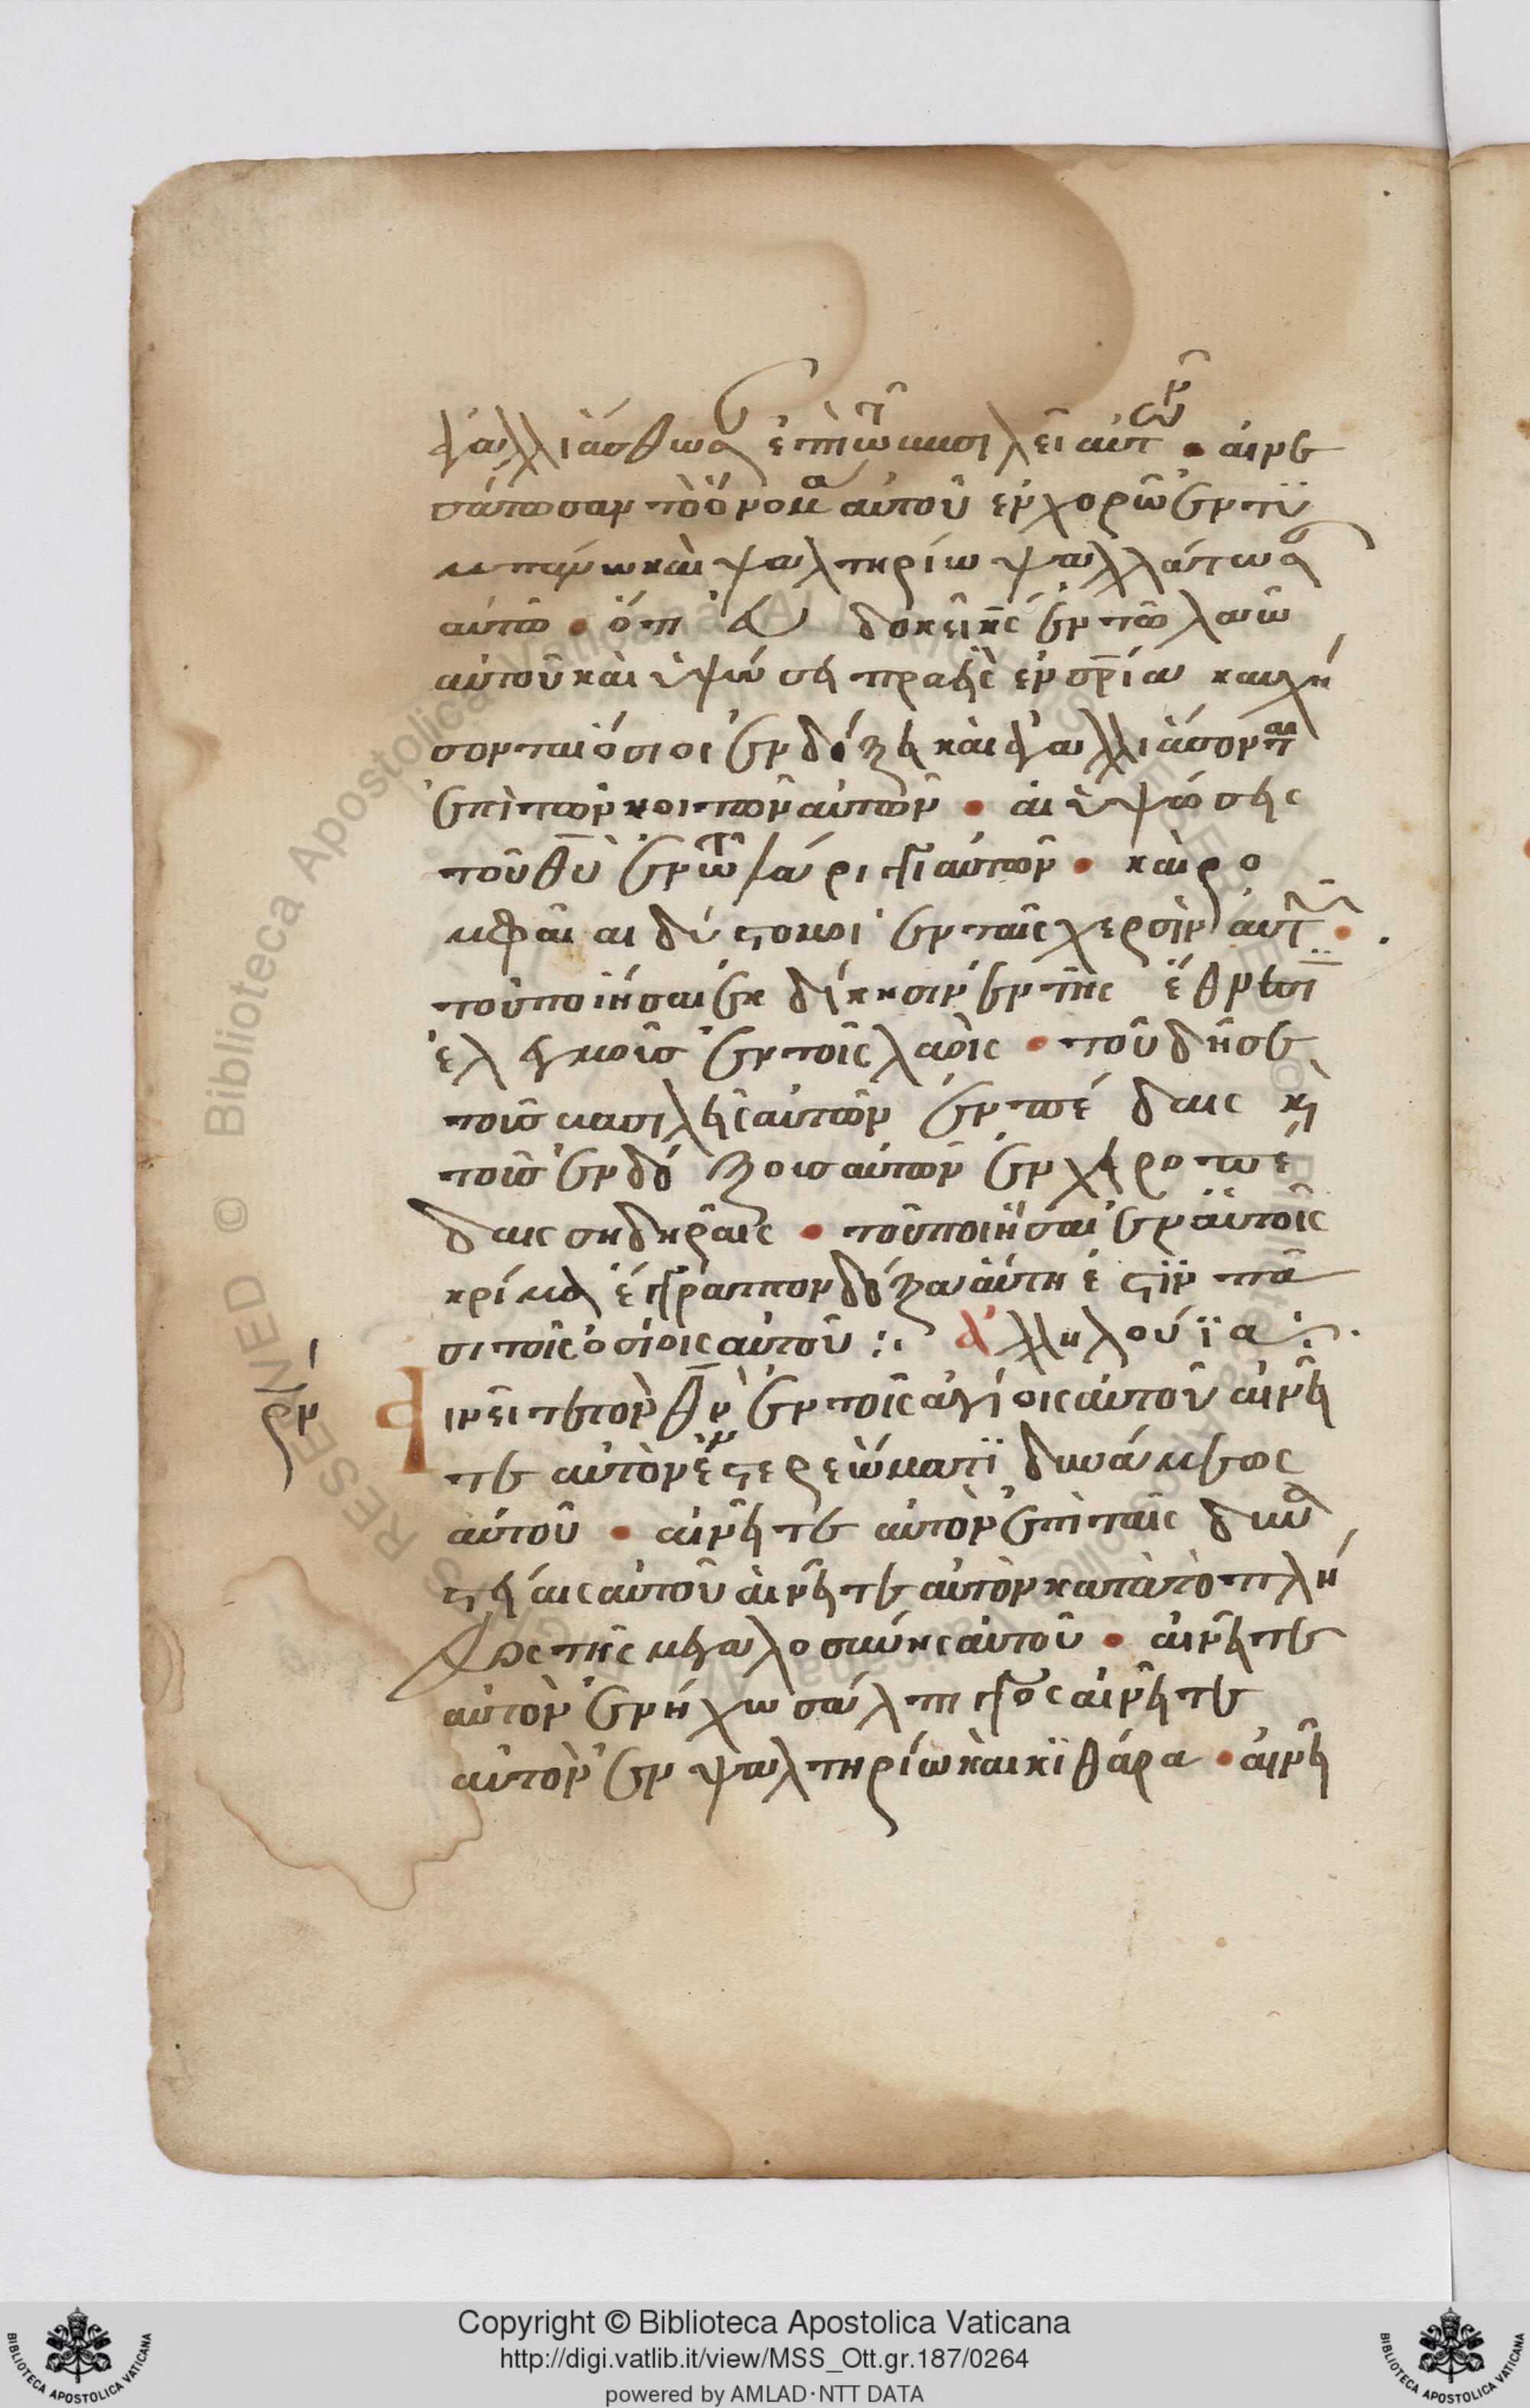 γαλλιάσθωσαν ἐπὶ τῶ βασιλεῖ αὐτῶν · αἰνε
σάτωσαν τὸ ὄνομα αὐτοῦ ἐν χορῶ ἐν τυ
μπάνω καὶ ψαλτηρίω ψαλλάτωσαν
αὐτῶ · ὅτι εὐδοκεῖ κς ἐν τῶ λαῶ
αὐτοῦ καὶ ὑψώσει πραεῖς ἐν σρία καυχή
σονται ὅσιοι ἐν δόξη καὶ ἀγαλλιάσονται
ἐπὶ τῶν κοιτῶν αὐτῶν · αἱ ὑψώσεις
τοῦ θυ ἐν τῶ λάριγγι αὐτῶν · καὶ ρο
μφαῖαι δύστομοι ἐν ταῖς χερσὶν αὐτῶν ·
τοῦ ποιῆσαι ἐκδίκησιν ἐν τῆς ἔθνεσι
ἐλεγμοῖσ ἐν τοῖς λαοῖς · τοῦ δῆσε
τοῖσ βασιλεῖς αὐτῶν ἐν πέδαις καὶ
τοῖσ ἐνδόξοισ αὐτῶν ἐν χειροπέ
δαις σηδηραῖς · τοῦ ποιῆσαι ἐν αὐτοῖς
κρίμα ἔγγραπτον δόξα αὕτη ἐστὶν πᾶ
σι τοῖς ὁσίοις αὐτοῦ :· ἀλληλούϊα :·
ρν αἰνεῖτε τὸν θν ἐν τοῖς ἁγίοις αὐτοῦ αἰνεῖ
τε αὐτὸν ἐν στερεώματι δυνάμεως
αὐτοῦ · αἰνεῖτε αὐτὸν ἐπὶ ταῖς δυνα
στείαις αὐτοῦ αἰνεῖτε αὐτὸν κατὰ τὸ πλή
θος τῆς μεγαλοσύνης αὐτοῦ · αἰνεῖτε
αὐτὸν ἐν ἤχω σάλπιγγος αἰνεῖτε
αὐτὸν ἐν ψαλτηρίω καὶ κιθάρα · αἰνεῖ
Copyright © Biblioteca Apostolica Vaticana
http://digi.vatlib.it/view/MSS_Ott.gr.187/0264
powered by AMLAD·NTT DATA